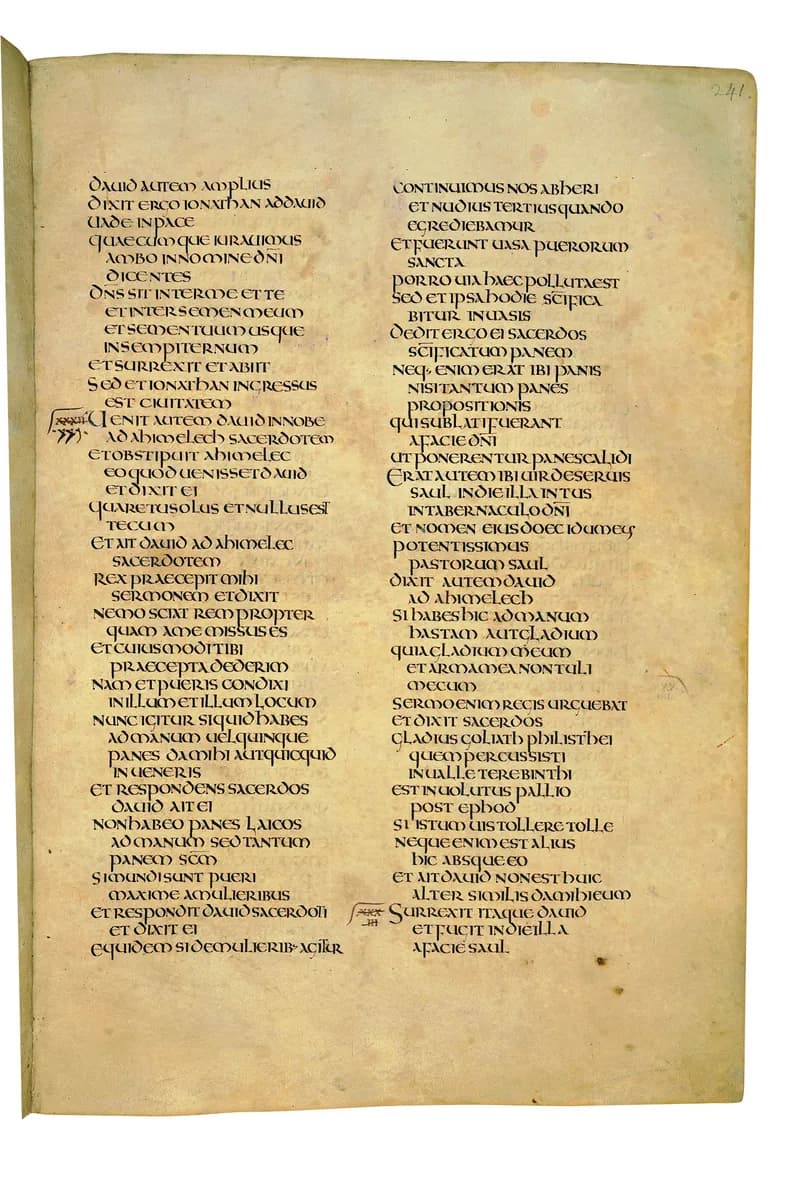 241.
DAUID AUTEM AMPLIUS
DIXIT ERGO IONATHAN ADDAUID
UADE IN PACE
QUAECUMQUE IURAUIMUS
AMBO IN NOMINE DN̄I
DICENTES
DN̄S SIT INTER ME ET TE
ET INTER SEMEN MEUM
ET SEMEN TUUM USQUE
IN SEMPITERNUM
ET SURREXIT ET ABIIT
SED ET IONATHAN INGRESSUS
EST CIUITATEM
UENIT AUTEM DAUID IN NOBE
AD AHIMELECH SACERDOTEM
ET OBSTIPUIT AHIMELEC
EO QUOD UENISSET DAUID
ET DIXIT EI
QUARE TU SOLUS ET NULLUS EST
TECUM
ET AIT DAUID AD AHIMELEC
SACERDOTEM
REX PRAECEPIT MIHI
SERMONEM ET DIXIT
NEMO SCIAT REM PROPTER
QUAM A ME MISSUS ES
ET CUIUSMODI TIBI
PRAECEPTA DEDERIM
NAM ET PUERIS CONDIXI
IN ILLUM ET ILLUM LOCUM
NUNC IGITUR SI QUID HABES
AD MANUM UEL QUINQUE
PANES DA MIHI AUT QUICQUID
INUENERIS
ET RESPONDENS SACERDOS
DAUID AIT EI
NON HABEO PANES LAICOS
AD MANUM SED TANTUM
PANEM SC̄M
SI MUNDI SUNT PUERI
MAXIME A MULIERIBUS
ET RESPONDIT DAUID SACERDOTI
ET DIXIT EI
EQUIDEM SI DE MULIERIB· AGITUR
CONTINUIMUS NOS AB HERI
ET NUDIUS TERTIUS QUANDO
EGREDIEBAMUR
ET FUERUNT UASA PUERORUM
SANCTA
PORRO UIA HAEC POLLUTA EST
SED ET IPSA HODIE SC̄IFICA
BITUR IN UASIS
DEDIT ERGO EI SACERDOS
SC̄IFICATUM PANEM
NEQ· ENIM ERAT IBI PANIS
NISI TANTUM PANES
PROPOSITIONIS
QUI SUBLATI FUERANT
A FACIE DN̄I
UT PONERENTUR PANES CALIDI
ERAT AUTEM IBI UIR DE SERUIS
SAUL IN DIE ILLA INTUS
IN TABERNACULO DN̄I
ET NOMEN EIUS DOEC IDUMEUS
POTENTISSIMUS
PASTORUM SAUL
DIXIT AUTEM DAUID
AD AHIMELECH
SI HABES HIC AD MANUM
HASTAM AUT GLADIUM
QUIA GLADIUM MEUM
ET ARMA MEA NON TULI
MECUM
SERMO ENIM REGIS URGUEBAT
ET DIXIT SACERDOS
GLADIUS GOLIATH PHILISTHEI
QUEM PERCUSSISTI
IN UALLE TEREBINTHI
EST INUOLUTUS PALLIO
POST EPHOD
SI ISTUM UIS TOLLERE TOLLE
NEQUE ENIM EST ALIUS
HIC ABSQUE EO
ET AIT DAUID NON EST HUIC
ALTER SIMILIS DA MIHI EUM
SURREXIT ITAQUE DAUID
ET FUGIT IN DIE ILLA
A FACIE SAUL